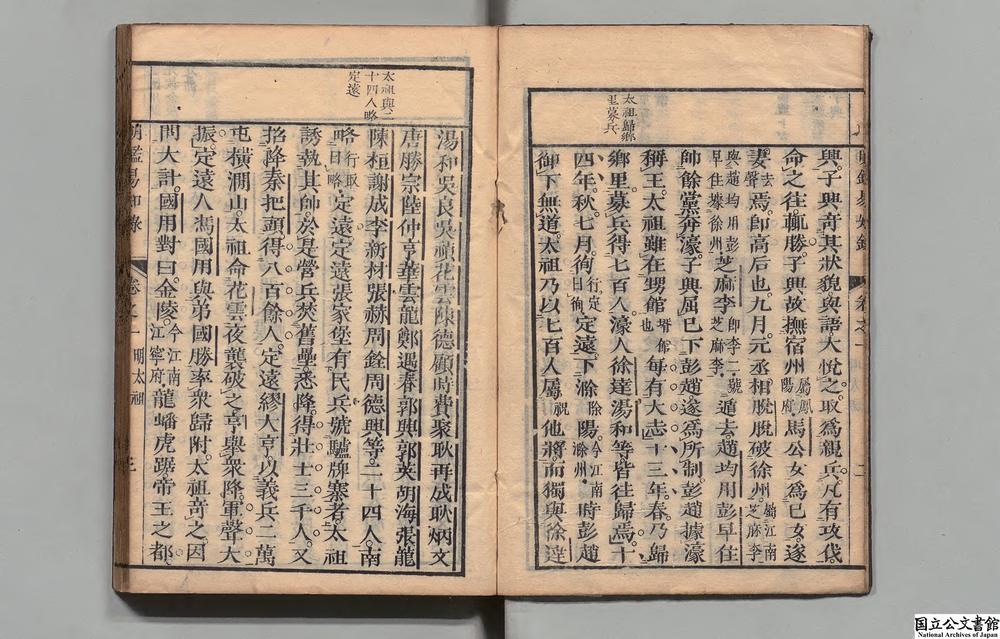 太祖歸鄉
里募兵
興子興奇其狀貌與語大悅之取爲親兵凡有攻伐
命之往輒勝子興故撫宿州屬鳳陽府馬公女爲己女遂
妻去聲焉卽高后也九月元丞相脫脫破徐州屬江南芝麻李
與趙均用彭早住據徐州芝麻李卽李二號芝麻李遁去趙均用彭早住
帥餘黨奔濠子興屈己下彭趙遂爲所制彭趙據濠
稱王太祖雖在甥館壻館也每有大志十三年春乃歸
鄉里募兵得七百人濠人徐達湯和等皆往歸焉十
四年秋七月徇行定曰徇定遠下滁陽滁今江南滁州時彭趙
御下無道太祖乃以七百人屬祝他將而獨與徐達
太祖與二
十四人略
定遠
湯和吳良吳禎花雲陳德顧時費聚耿再成耿炳文
唐勝宗陸仲亨華雲龍鄭遇春郭興郭英胡海張龍
陳桓謝成李新材張赫周銓周德興等二十四人南
略行取曰略定遠定遠張家堡有民兵號驢牌寨者太祖
誘執其帥於是營兵焚舊壘悉降得壯士三千人又
招降秦把頭得八百餘人定遠繆大亨以義兵二萬
屯橫澗山太祖命花雲夜襲破之亨舉衆降軍聲大
振定遠人馮國用與弟國勝率衆歸附太祖奇之因
問大計國用對曰金陵今江南江寧府龍蟠虎踞帝王之都
明鑑易知錄 卷之一 明太祖 三
国立公文書館
National Archives of Japan